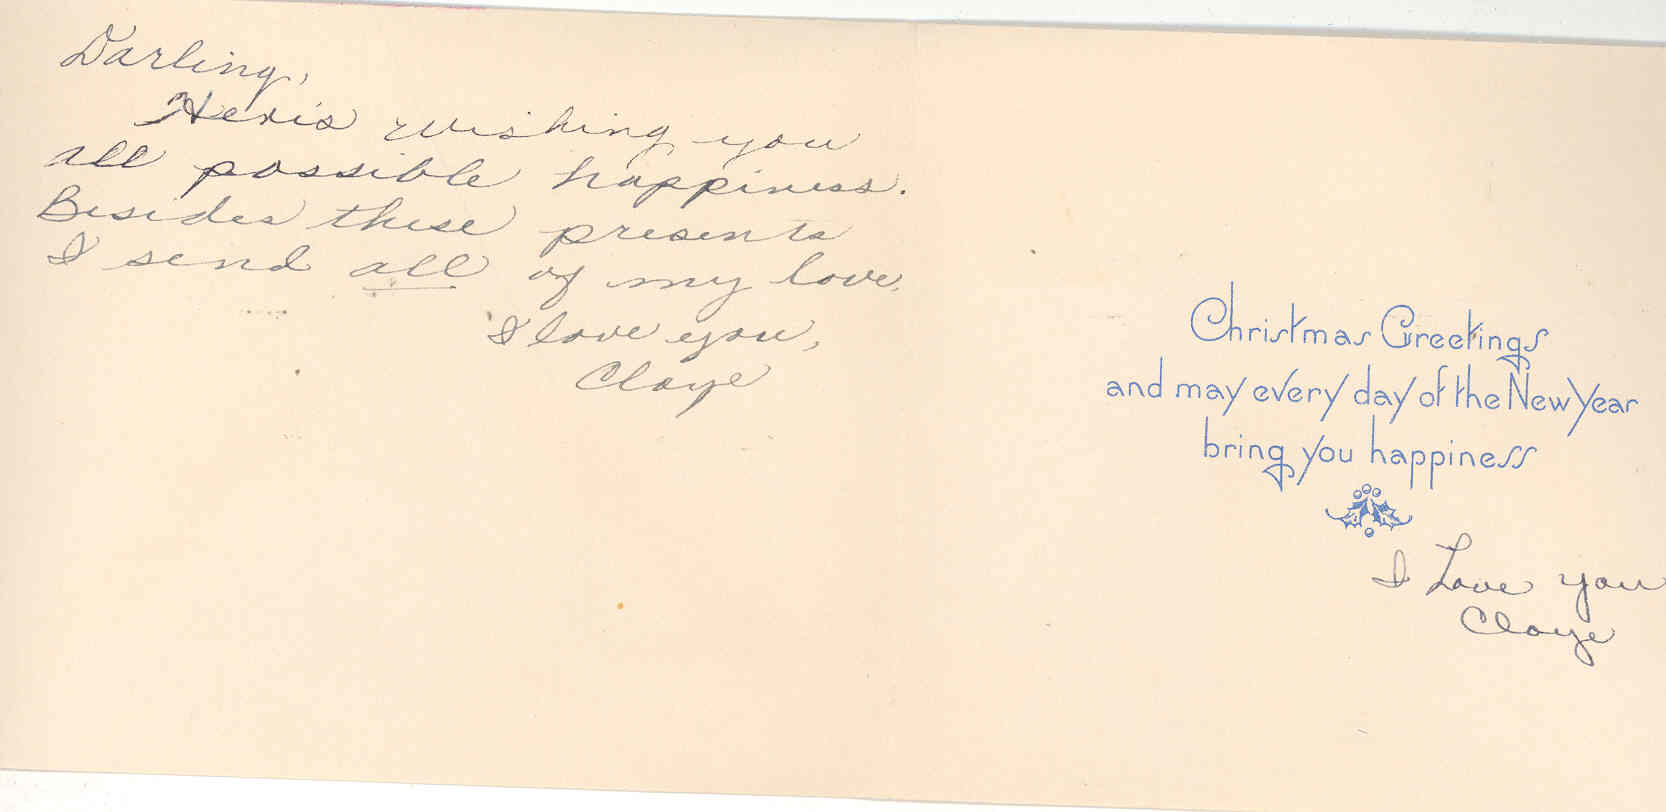 Darling,
Heris wishing you
all possible happiness.
Besides these presents
I send all of my love.
I love you,
Cloye
Christmas Greetings
and may every day of the New Year
bring you happiness
I Love you
Cloye